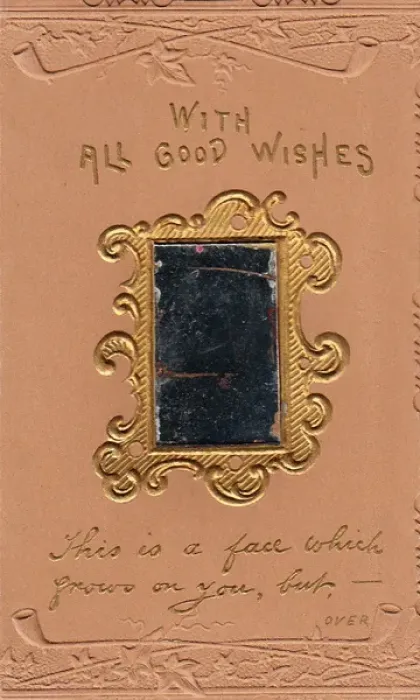 WITH
ALL GOOD WISHES
This is a face which
grows on you, but, —
OVER